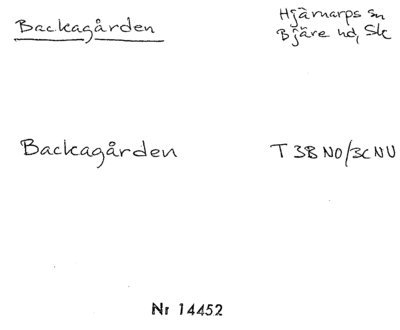 Backagården
Hjärnarps sn
Bjäre hd, Sk
Backagården
T 3B NO/3C NV
Nr 14452